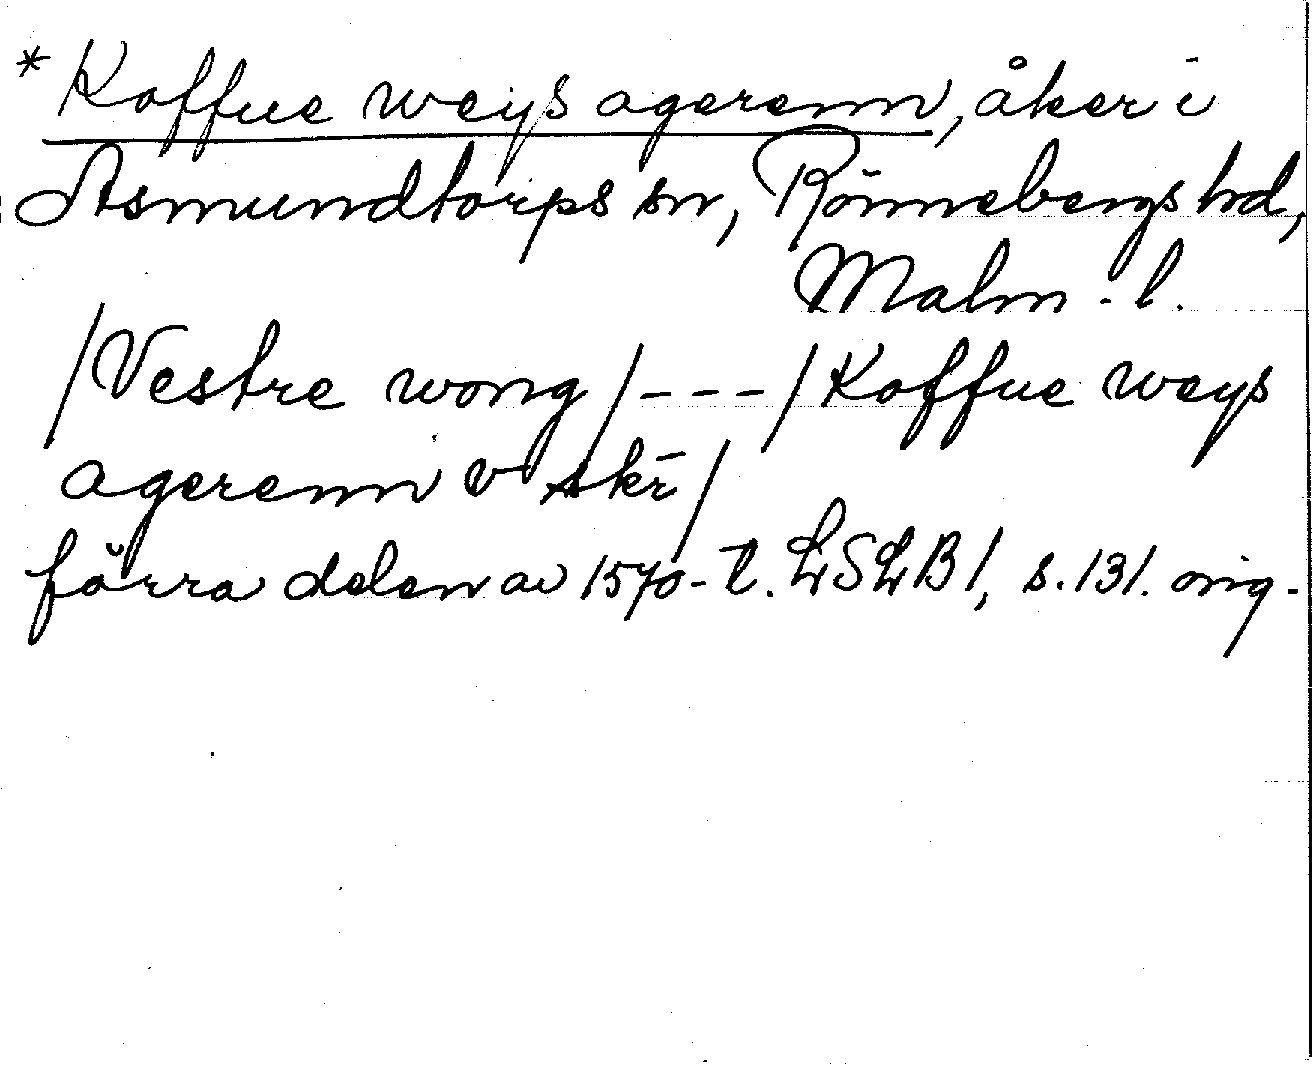 * Koffue weys agerenn, åker i
Asmundtorps sn, Rönnebergs hd,
Malm.l.
/Vestre wong/---/Koffue weys
agerenn v skr̄/
förra delen av 1570-t. LSLB1, s.131. orig.